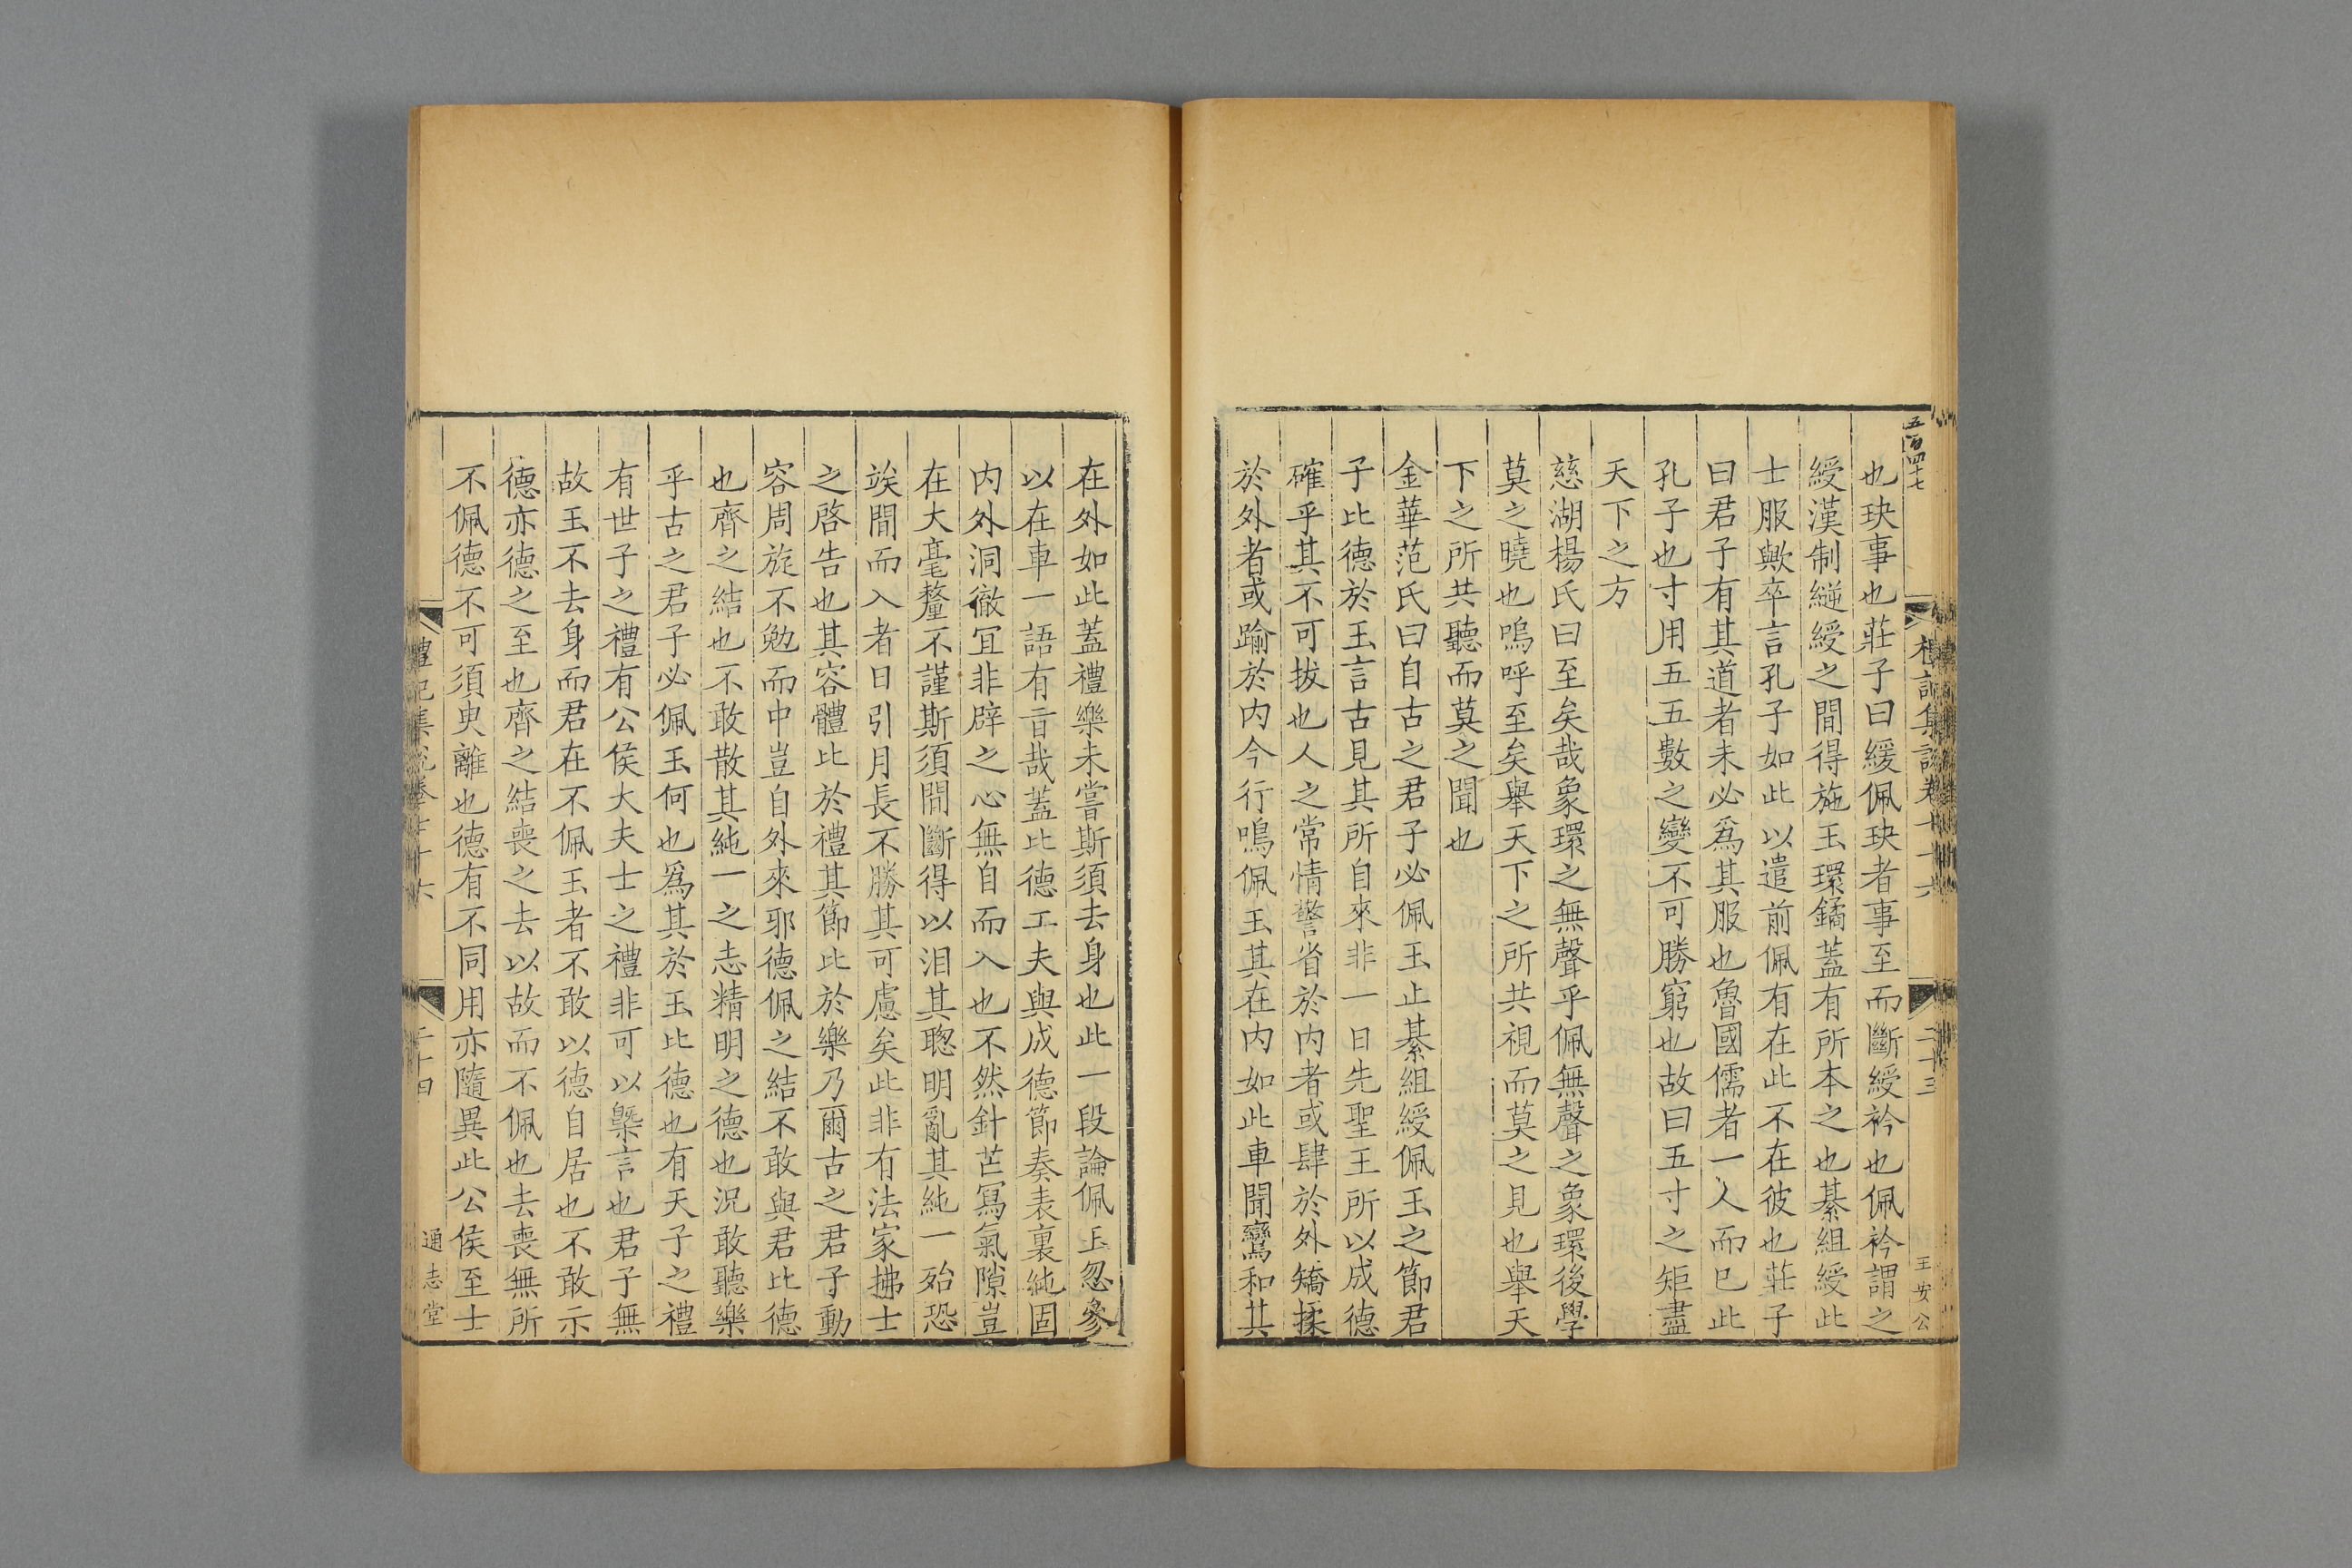 五百四十七
禮記集說卷七十六
二十三
王安公
也玦事也莊子曰緩佩玦者事至而斷綬衿也佩衿謂之
綬漢制縌綬之間得施玉環鐍蓋有所本之也綦組綬此
士服歟卒言孔子如此以遣前佩有在此不在彼也莊子
曰君子有其道者未必爲其服也魯國儒者一人而已此
孔子也寸用五五數之變不可勝窮也故曰五寸之矩盡
天下之方
慈湖楊氏曰至矣哉象環之無聲乎佩無聲之象環後學
莫之曉也嗚呼至矣舉天下之所共視而莫之見也舉天
下之所共聽而莫之聞也
金華范氏曰自古之君子必佩玉止綦組綬佩玉之節君
子比德於玉言古見其所自來非一日先聖王所以成德
確乎其不可拔也人之常情警省於内者或肆於外矯揉
於外者或踰於内今行鳴佩玉其在内如此車聞鸞和其
在外如此蓋禮樂未嘗斯須去身也此一段論佩玉忽參
以在車一語有旨哉蓋比德工夫與成德節奏表裏純固
内外洞徹冝非辟之心無自而入也不然針芒冩氣隙豈
在大毫釐不謹斯須間斷得以汩其聦明亂其純一殆恐
竢間而入者日引月長不勝其可慮矣此非有法家拂士
之啓告也其容體比於禮其節比於樂乃爾古之君子動
容周旋不勉而中豈自外來邪德佩之結不敢與君比德
也齊之結也不敢散其純一之志精明之德也況敢聽樂
乎古之君子必佩玉何也爲其於玉比德也有天子之禮
有世子之禮有公侯大夫士之禮非可以槩言也君子無
故玉不去身而君在不佩玉者不敢以德自居也不敢示
德亦德之至也齊之結喪之去以故而不佩也去喪無所
不佩德不可須臾離也德有不同用亦隨異此公侯至士
禮記集說卷七十六
二十四
通志堂